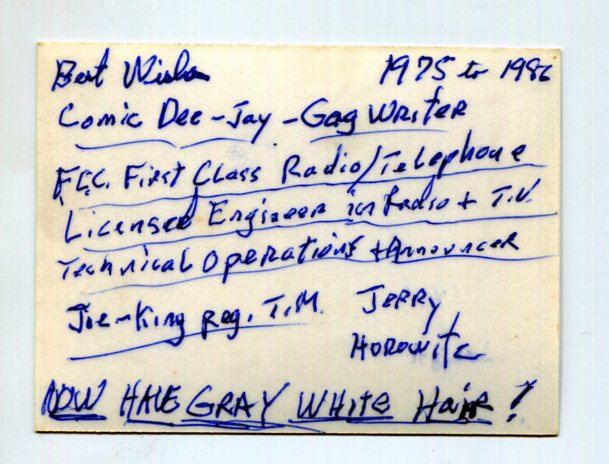 Best Wishes 1975 to 1986
Comic Dee-Jay - Gag Writer
F.C.C. First Class Radio/Telephone
Licensed Engineer in Radio + T.V.
Technical Operations + Announcer
Joe-King Reg. T.M. Jerry
Horowitz
NOW HAVE GRAY WHITE HAIR!